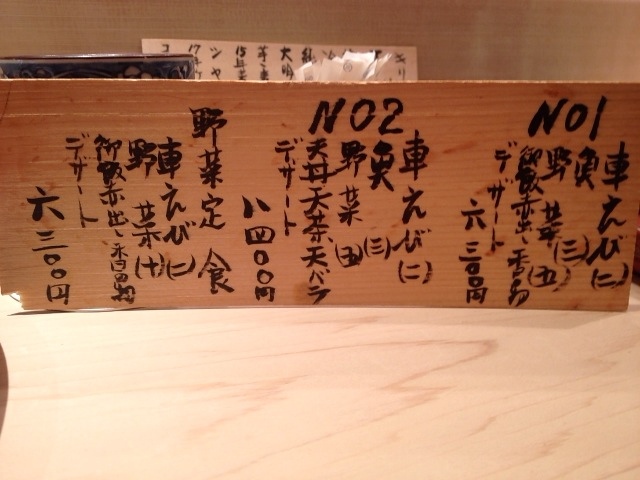 NO1
車えび(二)
魚(三)
野菜(五)
御飯赤出し香の物
デザート
六三〇〇円
NO2
車えび(二)
魚(三)
野菜(五)
天丼天茶天バラ
デザート
八四〇〇円
野菜定食
車えび(二)
野菜(十)
御飯赤出し香の物
デザート
六三〇〇円